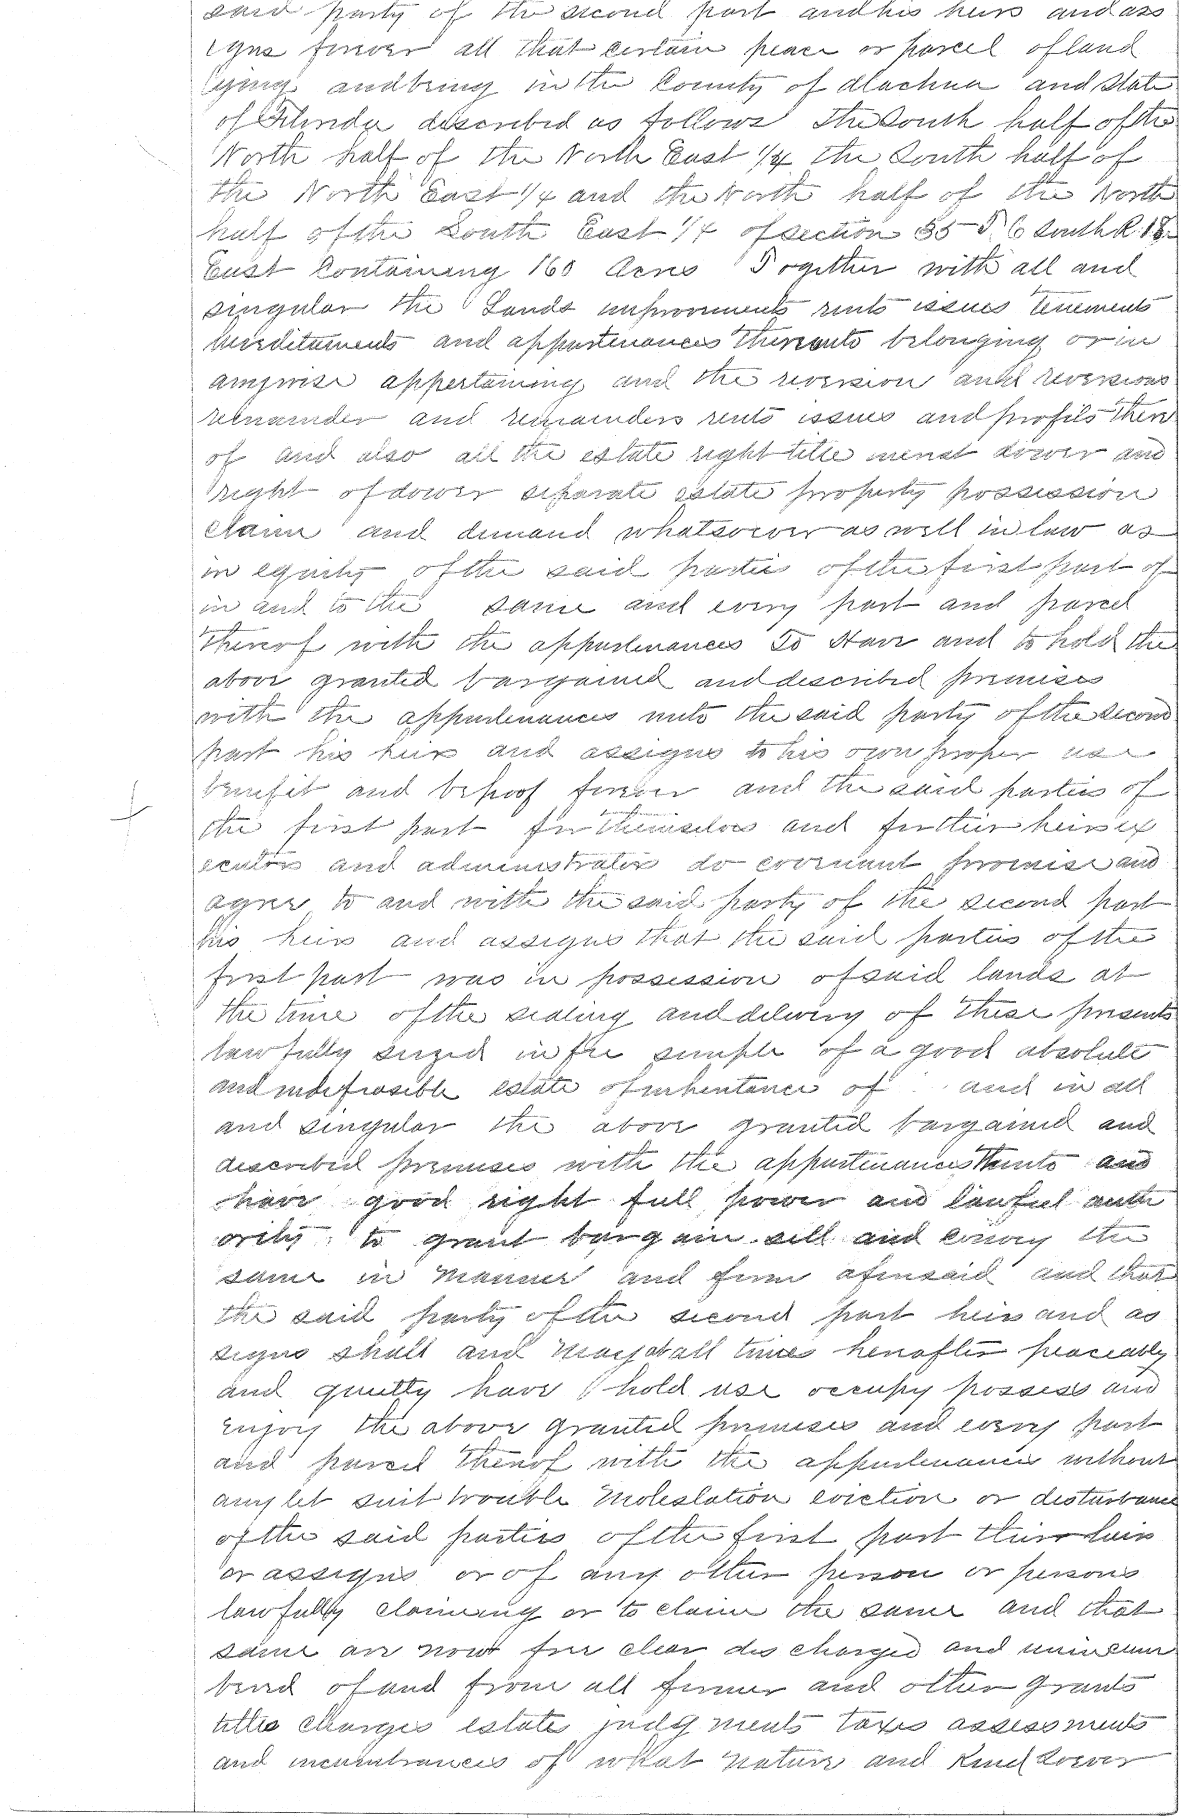 said party of the second part and his heirs and ass
igns forever all that certain peace or parcel of land
lying and being in the County of Alachua and State
of Florida described as follows The South half of the
North half of the North East 1/4 the South half of
the North East 1/4 and the North half of the North
half of the South East 1/4 of section 35 T. 6 South R. 18
East Containing 160 Acres Together with all and
singular the Lands improvements rents issues tenements
hereditaments and appurtenances thereunto belonging or in
anywise appertaining and the reversion and reversions
remainder and remainders rents issues and profits there
of and also all the estate right title interest dower and
right of dower separate estate property possession
claim and demand whatsoever as well in law as
in equity of the said parties of the first part of
in and to the same and every part and parcel
thereof with the appurtenances To Have and to hold the
above granted bargained and described premises
with the appurtenances unto the said party of the second
part his heirs and assigns to his own proper use
benefit and behoof forever and the said parties of
the first part for themselves and for their heirs ex
ecutors and administrators do covenant promise and
agree to and with the said party of the second part
his heirs and assigns that the said parties of the
first part was in possession of said lands at
the time of the sealing and delivery of these presents
lawfully seized in fee simple of a good absolute
and indefeasible estate of inheritance of and in all
and singular the above granted bargained and
described premises with the appurtenances thereunto and
have good right full power and lawful auth
ority to grant bargain sell and convey the
same in manner and form aforesaid and that
the said party of the second part heirs and as
signs shall and may at all times hereafter peaceably
and quietly have hold use occupy possess and
enjoy the above granted premises and every part
and parcel thereof with the appurtenances without
any let suit trouble molestation eviction or disturbance
of the said parties of the first part their heirs
or assigns or of any other person or persons
lawfully claiming or to claim the same and that
same are now free clear discharged and unincum
bered of and from all former and other grants
titles charges estates judgments taxes assessments
and incumbrances of what nature and Kind soever